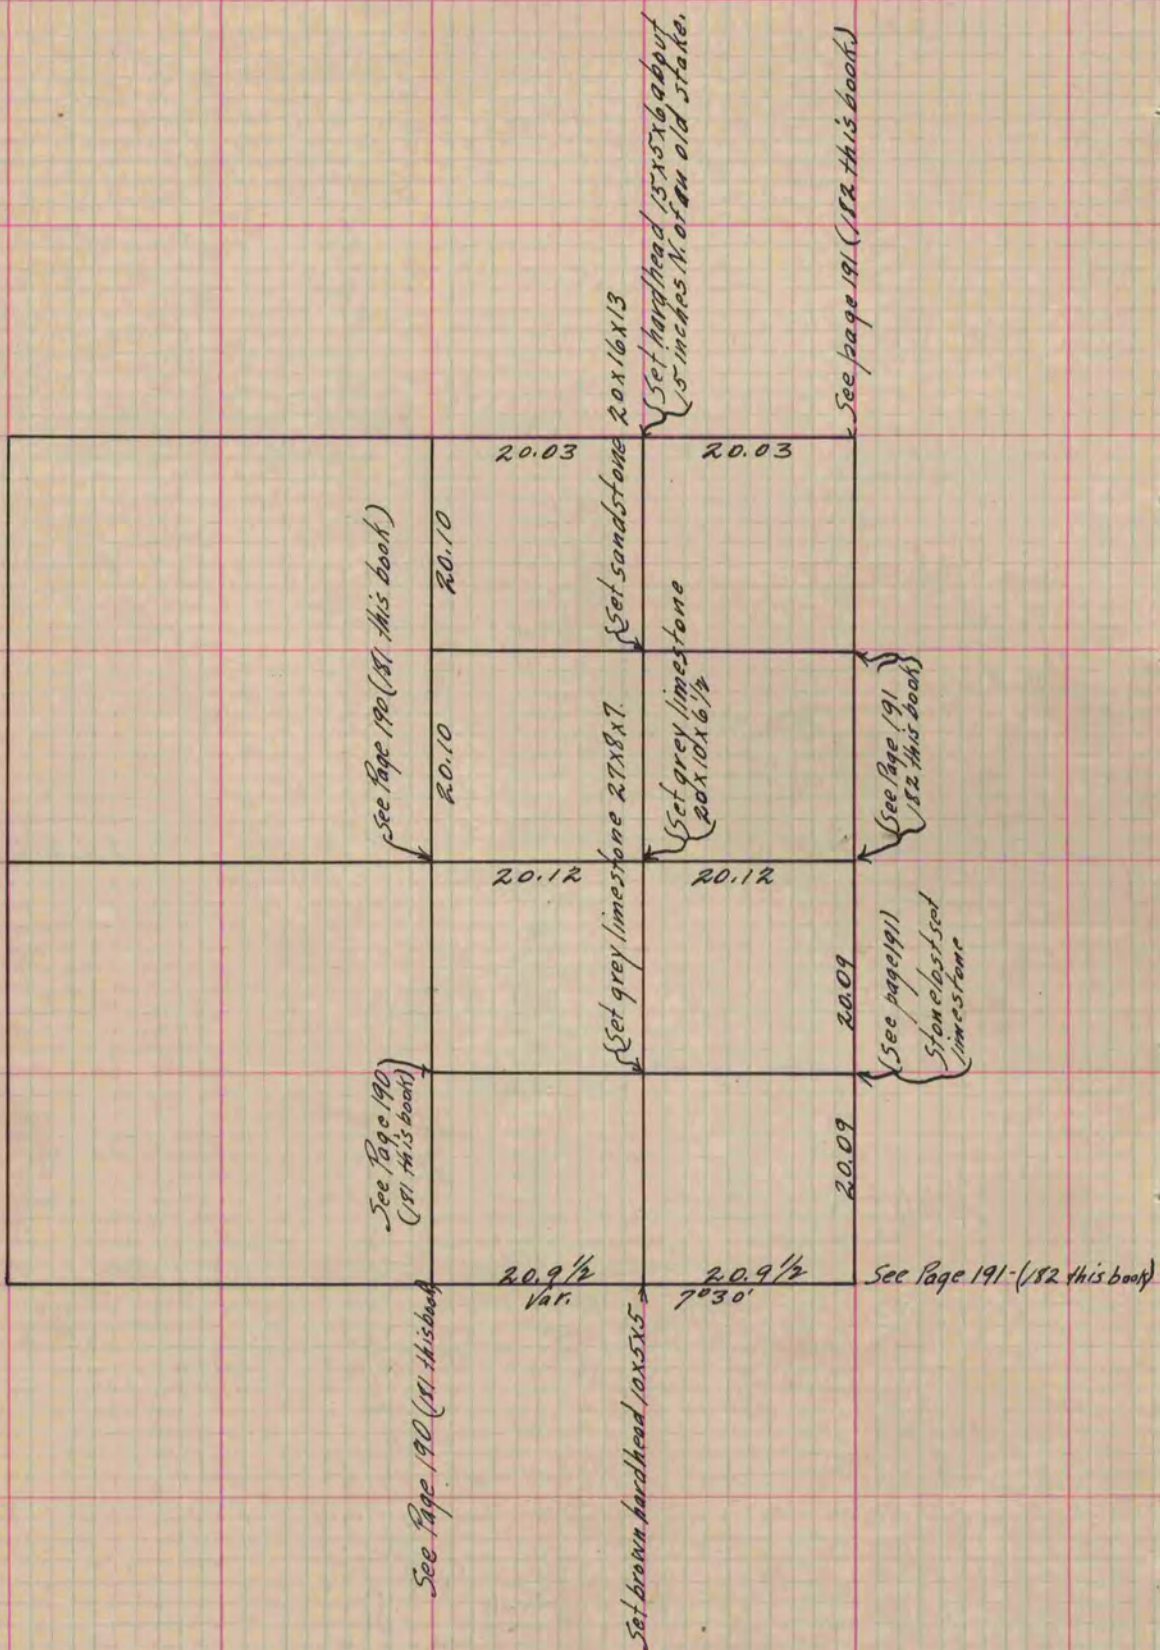 (Set hardhead 15x5x6 about
5 inches N. of an old stake.
See page 191 (182 this book)
Set sandstone 20x16x13
20.03
20.03
See Page 190 (181 this book)
20.10
20.10
Set grey limestone
20x10x6 1/2
(See Page 191
182 this book)
Set grey limestone 27x8x7.
20.12
20.12
(See page 191)
Stone lost set
limestone
20.09
20.09
See Page 190
(181 this book)
20.9 1/2
20.9 1/2
Var.
7°30'
See Page 191-(182 this book)
See Page 190 (181 this book
Set brown hardhead 10x5x5